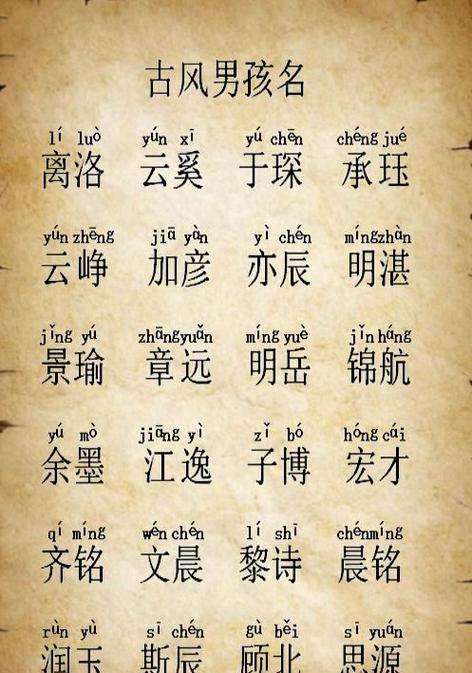 古风男孩名
lí luò yún xī yú chēn chéng jué
离洛 云奚 于琛 承珏
yún zhēng jiā yàn yì chén míng zhàn
云峥 加彦 亦辰 明湛
jǐng yú zhāng yuǎn míng yuè jǐn háng
景瑜 章远 明岳 锦航
yú mò jiāng yì zǐ bó hóng cái
余墨 江逸 子博 宏才
qí míng wén chén lí shī chén míng
齐铭 文晨 黎诗 晨铭
rùn yù sī chén gù běi sī yuán
润玉 斯辰 顾北 思源